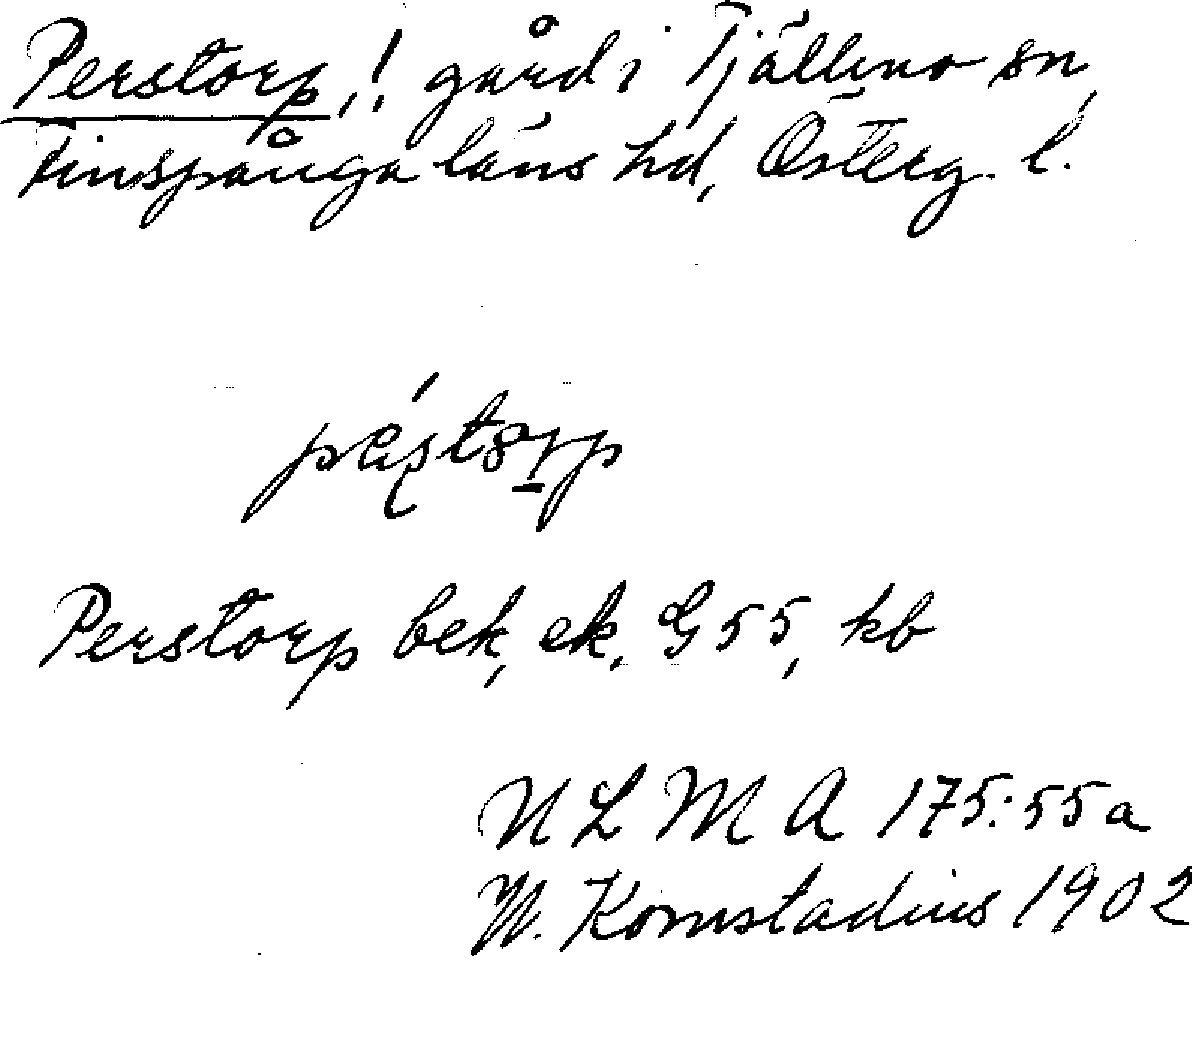 Perstorp,! gård i Tjällmo sn,
Finspånga läns hd, Österg. l.
Perstorp bek, ek, G 55, kb
N L M A 175:55a
W. Kornstadius 1902